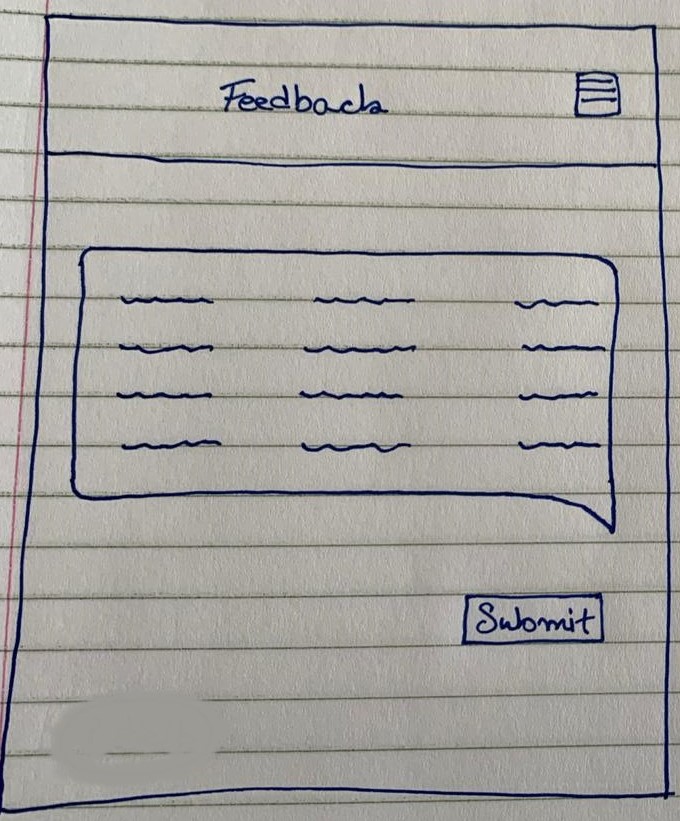 Feedback
Submit